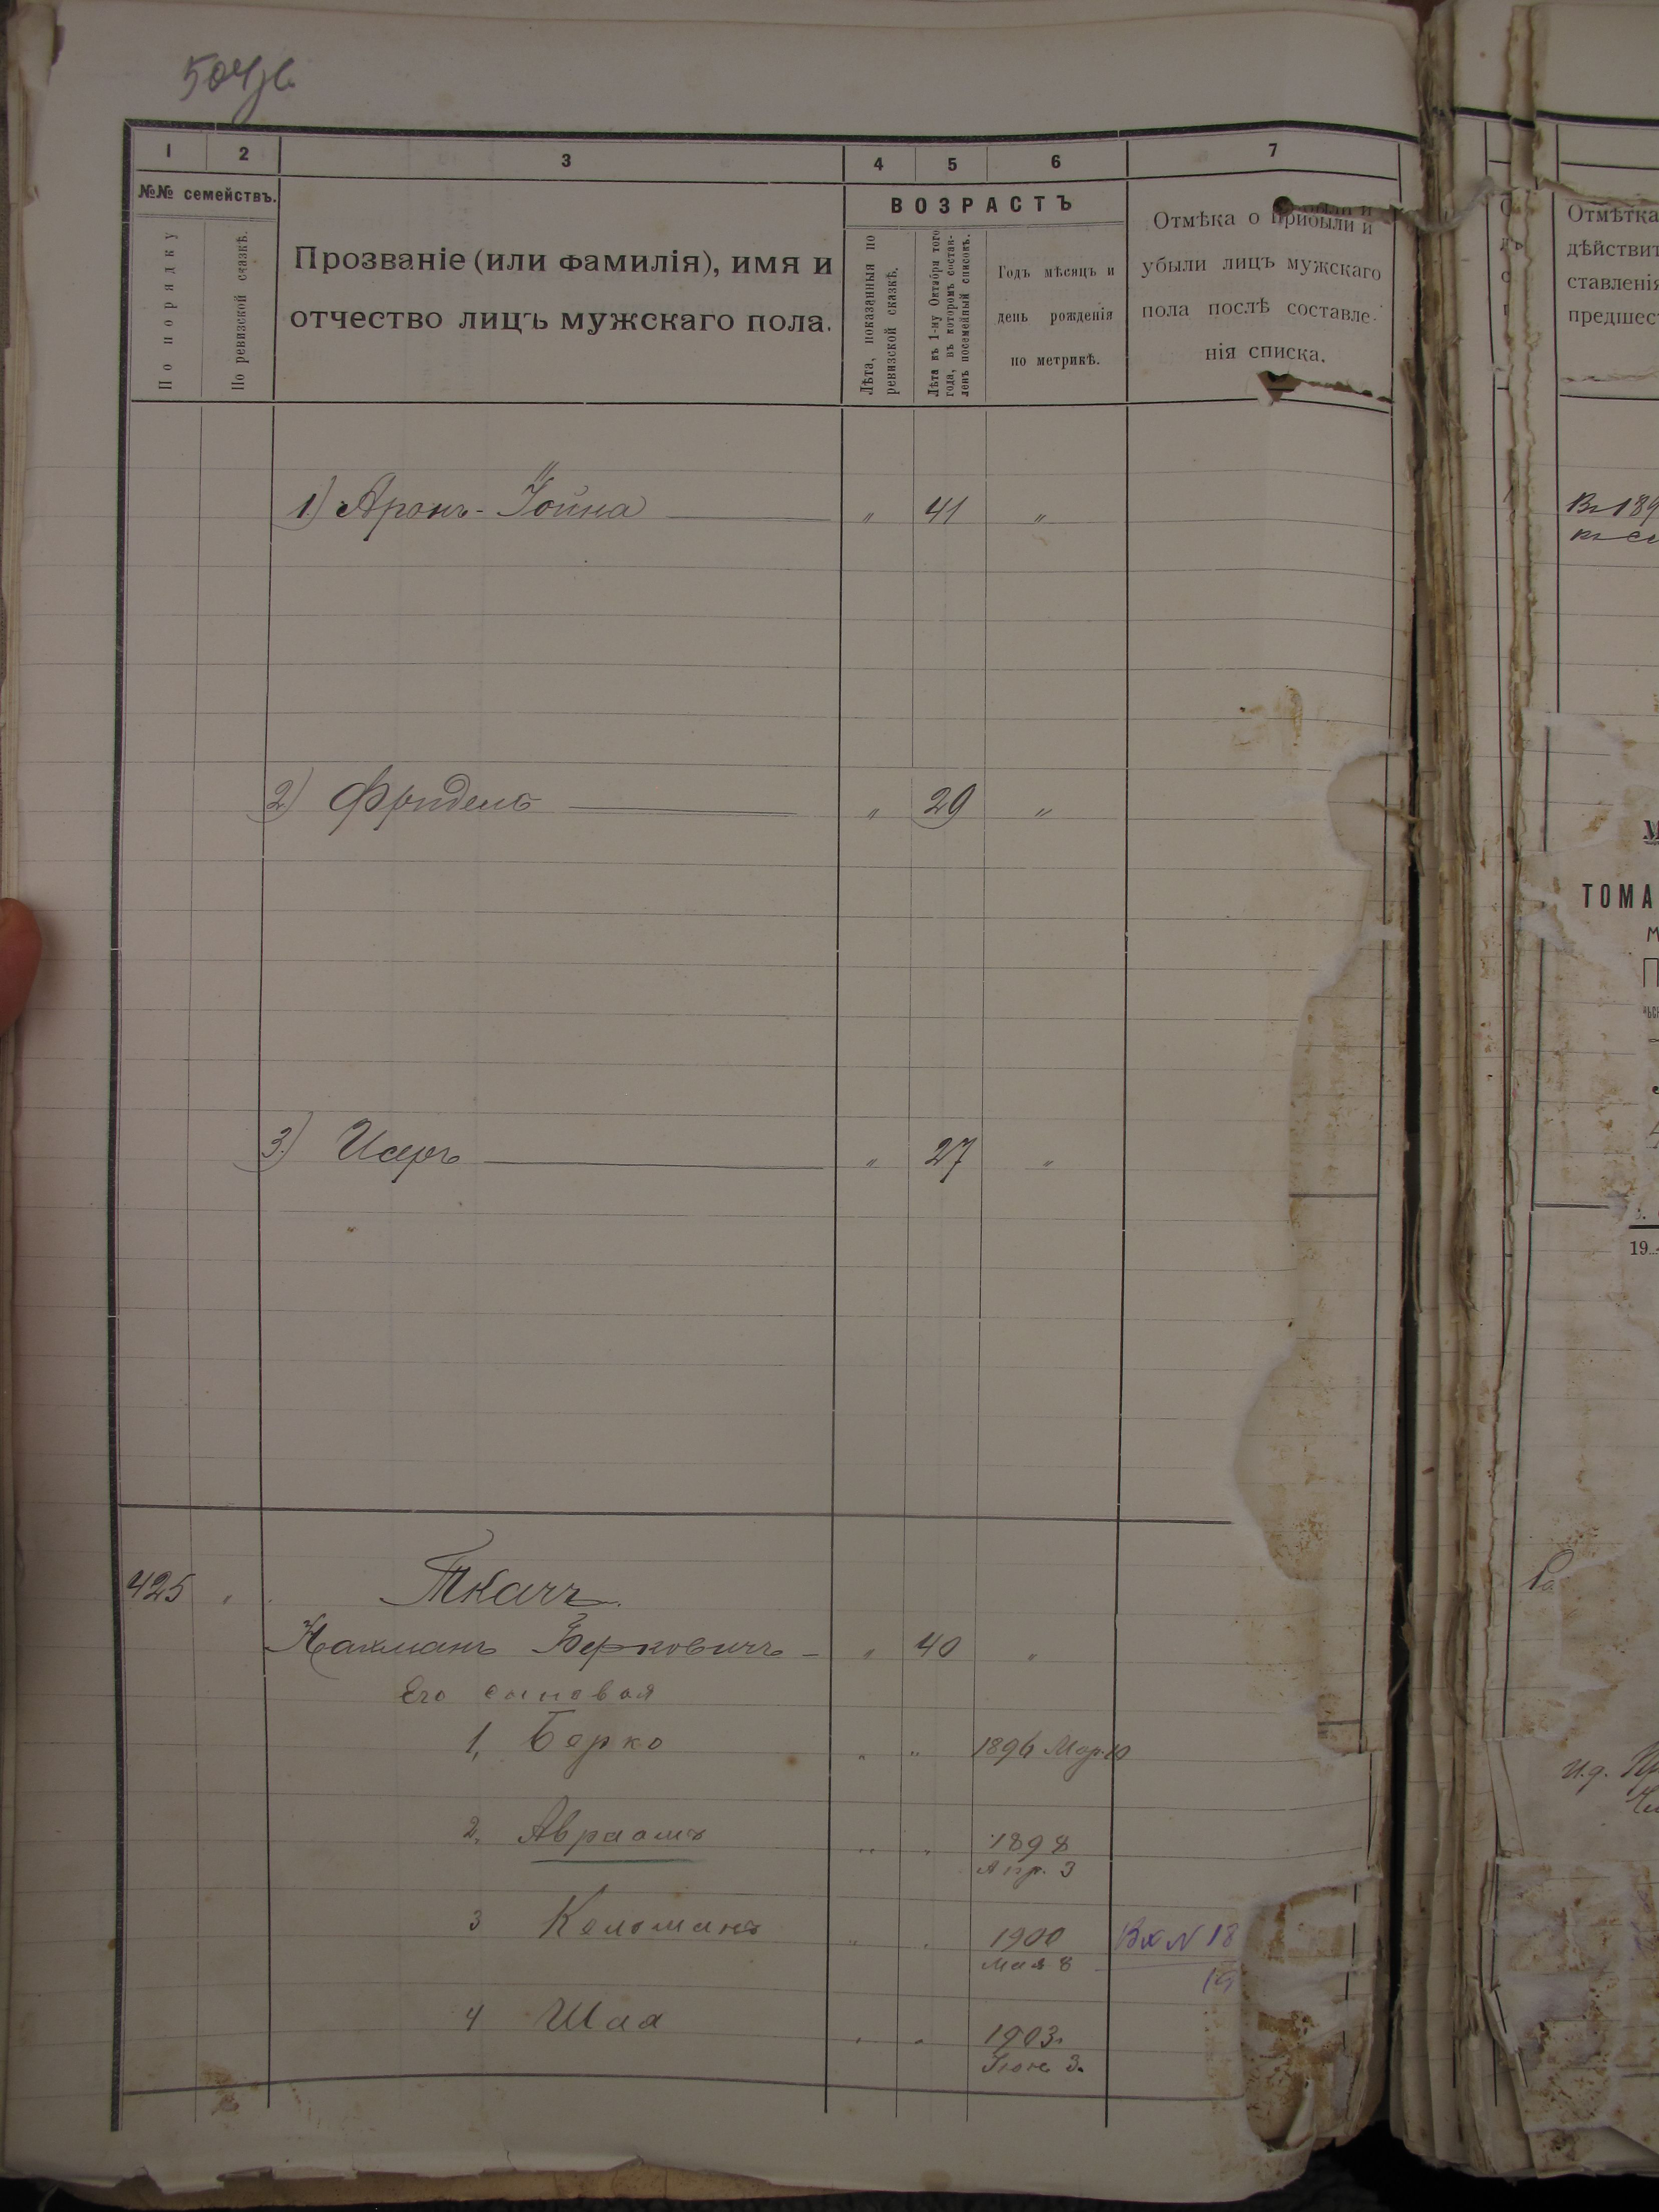 504об
1 2 3 4 5 6 7
№№ семействъ.
По порядку
По ревизской сказкѣ.
Прозваніе (или фамилія), имя и
отчество лицъ мужскаго пола.
ВОЗРАСТЪ
Лѣта, показанныя по
ревизской сказкѣ.
Лѣта къ 1-му Октября того
года, въ которомъ состав-
ленъ посемейный списокъ.
Годъ мѣсяцъ и
день рожденія
по метрикѣ.
Отмѣка о прибыли и
убыли лицъ мужскаго
пола послѣ составле-
нія списка.
1) Аронъ-Іойна " 41 "
2) Фридель " 29 "
3) Исеръ " 27 "
425 " Ткачъ.
Нахманъ Берковичъ - " 40 "
Его сыновья
1, Берко " " 1896 Мар. 10
2, Авраамъ " " 1898
Апр. 3
3 Кельманъ " " 1900 Вх N 18
Мая 8
19
4 Шая " " 1903.
Іюня 3.
Отмѣтка
дѣйствит
ставленія
предшест
Въ 189
ТОМА
19
и.д.